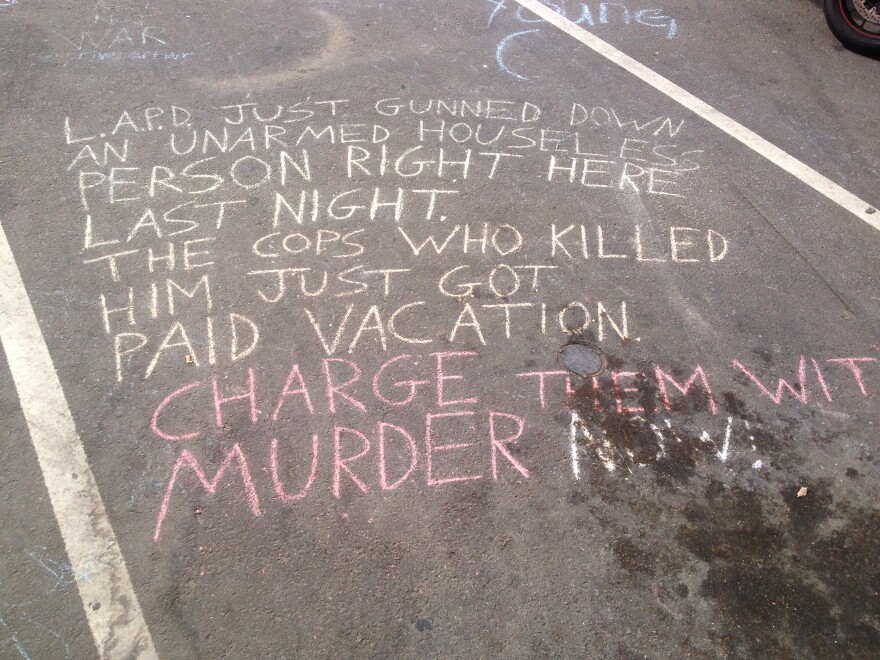 WAR
Young
L.A.P.D. JUST GUNNED DOWN
AN UNARMED HOUSELESS
PERSON RIGHT HERE
LAST NIGHT.
THE COPS WHO KILLED
HIM JUST GOT
PAID VACATION.
CHARGE THEM WIT
MURDER NOW!